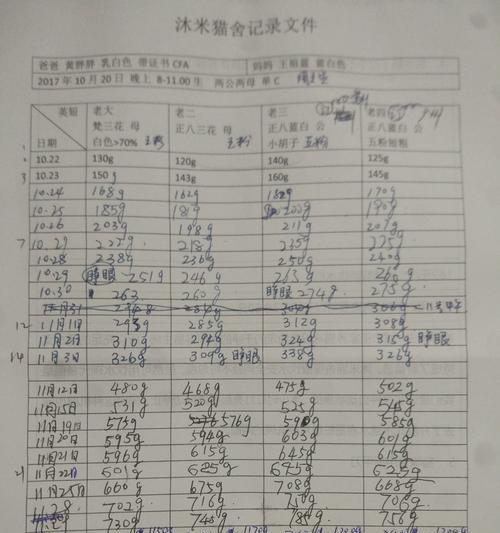 沐米猫舍记录文件
爸爸 黄胖胖 乳白色 带证书CFA 妈妈
2017年10月20日 晚上 8-11.00生 两公两母 单C
英短 老大 老二 老三 老四
梵三花 母 正八三花 母 正八蓝白 公 正八蓝白 公
日期 白色>70% 玉粉 玉粉 小胡子 五粉 五粉短粗
10.22 130g 120g 140g 125g
3 10.23 150g 143g 160g 145g
10.24 168g 162g 182g 170g
10.25 185g 181g 200g 190g
10.26 203g 198g 211g 207g
7 10.27 222g 218g 235g 225g
10.28 238g 236g 250g 240g
10.29 睁眼 251g 246g 263g 260g
10.30 263 260g 睁眼 274g 275g
12 11月1日 293g 285g 312g 308g
11月2日 310g 294g 324g 315g 睁眼
14 11月3日 326g 309g 睁眼 338g 326g
11月12日 480g 468g 475g 502g
11月15日 531g 520g 525g 545g
11月19日 573g 576g 590g 585g
11月20日 595g 594g 603g 601g
11月21日 596g 615g 645g 615g
21 11月22日 601g 625g 645g 625g
11月25日 660g 675g 708g 668g
11.28 702g 716g 750g 706g
730g 748g 785g 756g